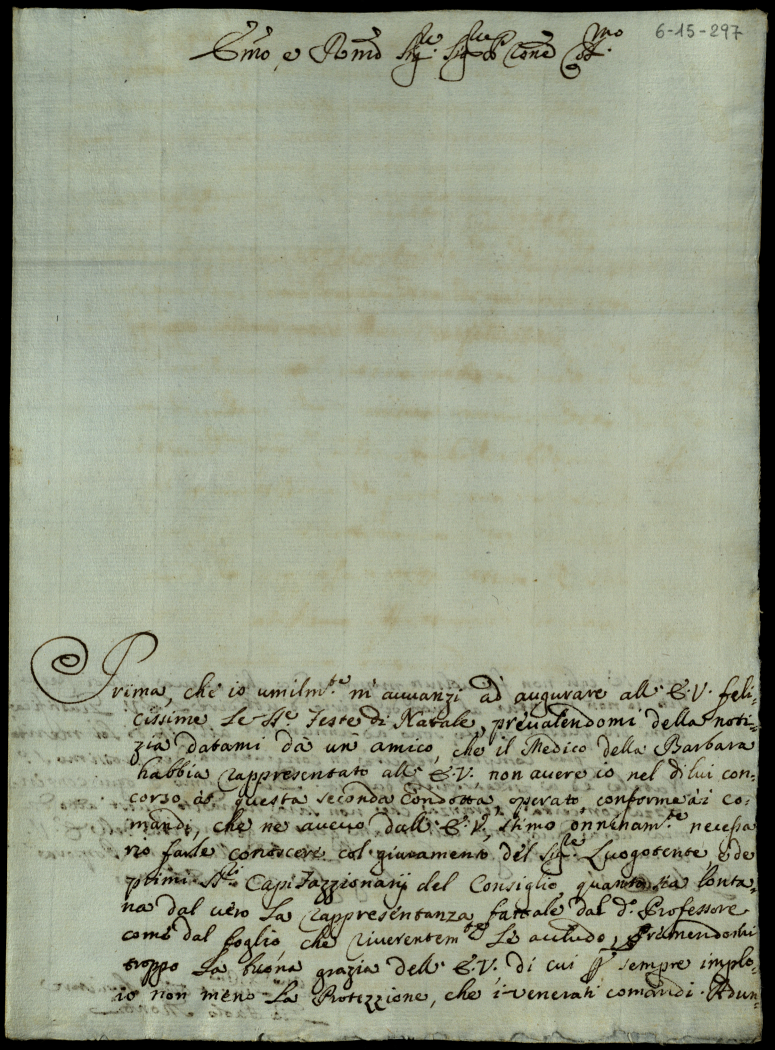 6-15-297
Emo, e Rmo Sigre. Sigre e Pne Colmo.
Prima, che io umilmte. m'avvanzi ad augurare all'E.V. feli=
cissime le Ste. Feste di Natale, prevalendomi della noti=
zia datami da un amico, che il Medico della Barbara
habbia rappresentato all'E.V. non avere io nel di lui con=
corso à questa seconda Condotta operato conforme ai co=
mandi, che ne avevo dall'E.V. stimo onninamte. necessa
rio farle conoscere col giuramento del Sigre. Luogotente, e de
primi Sti. Capi Fazzionarij del Consiglio quanto sia lonta=
na dal vero la rappresentanza fattale dal do. Professore
come dal foglio che riverentemte. Le accludo, Premendomi
troppo la buona grazia dell'E.V. di cui p sempre implo=
ro non meno la Protezzione, che i venerati comandi. Adun=